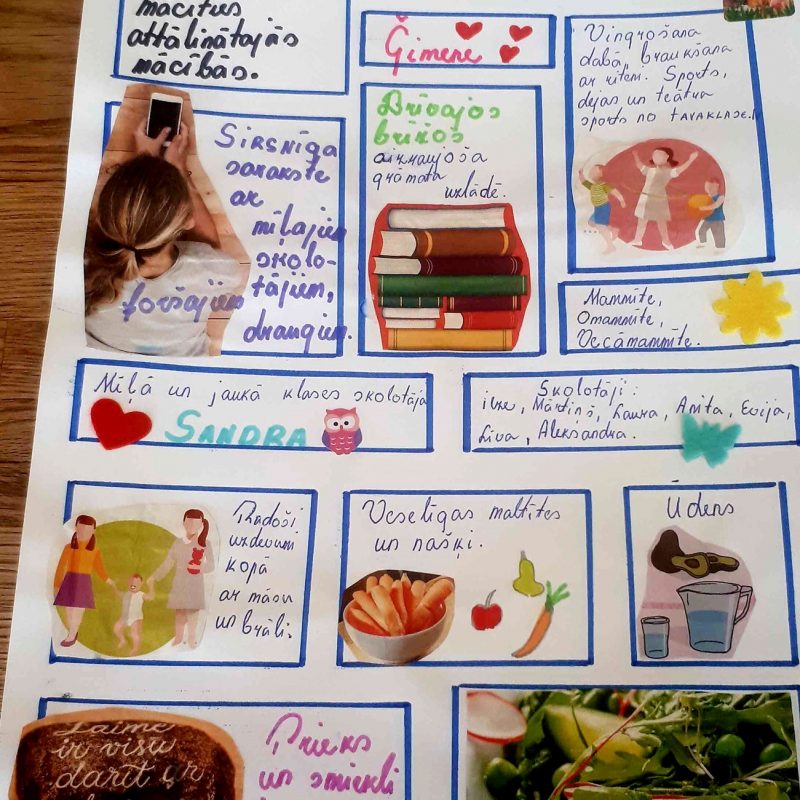 mācīties
attālinātajās
mācībās.
Ģimene
Vingrošana
dabā, braukšana
ar riteni. Sports,
dejas un teātra
sports no TAVAKLASE.
Sirsnīga
sarakste
ar
mīļajiem
skolo-
foršajiem tājiem,
draugiem.
Brīvajos
brīžos
aizraujoša
grāmata
uzlādē.
Mammīte,
Omammīte,
Vecāmammīte.
Mīļā un jaukā klases skolotāja
SANDRA
Skolotāji:
Mārtiņš, Laura, Anita, Evija,
Līva, Aleksandra.
Radoši
uzdevumi
kopā
ar māsu
un brāli.
Veselīgas maltītes
un našķi.
Ūdens
Laime
ir visu
darīt ar
Prieks
un smiekli